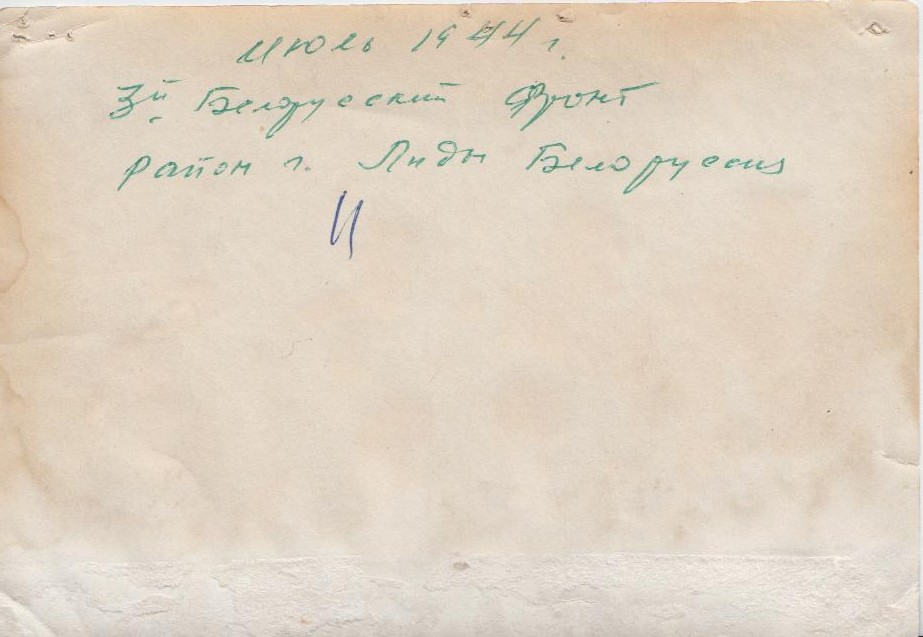 Июль 1944 г.
3й Белорусский Фронт
район г. Лиды Белоруссия